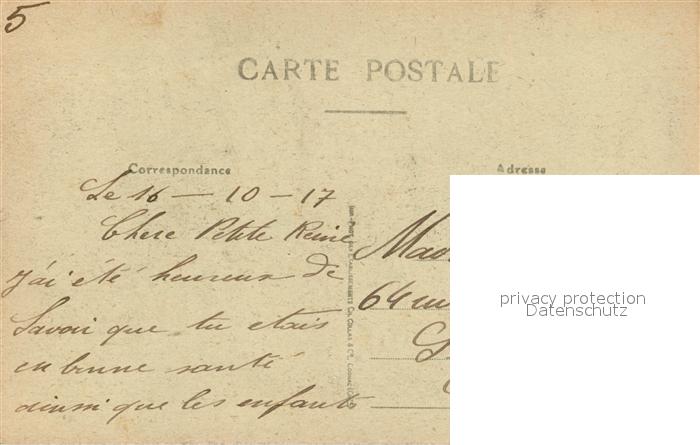 5
CARTE POSTALE
Correspondance
Adresse
Le 16 – 10 – 17
Chere Petite Reine
j'ai été heureux de
Savoir que tu etais
en bonne santé
ainsi que les enfants
64 rue
privacy protection
Datenschutz